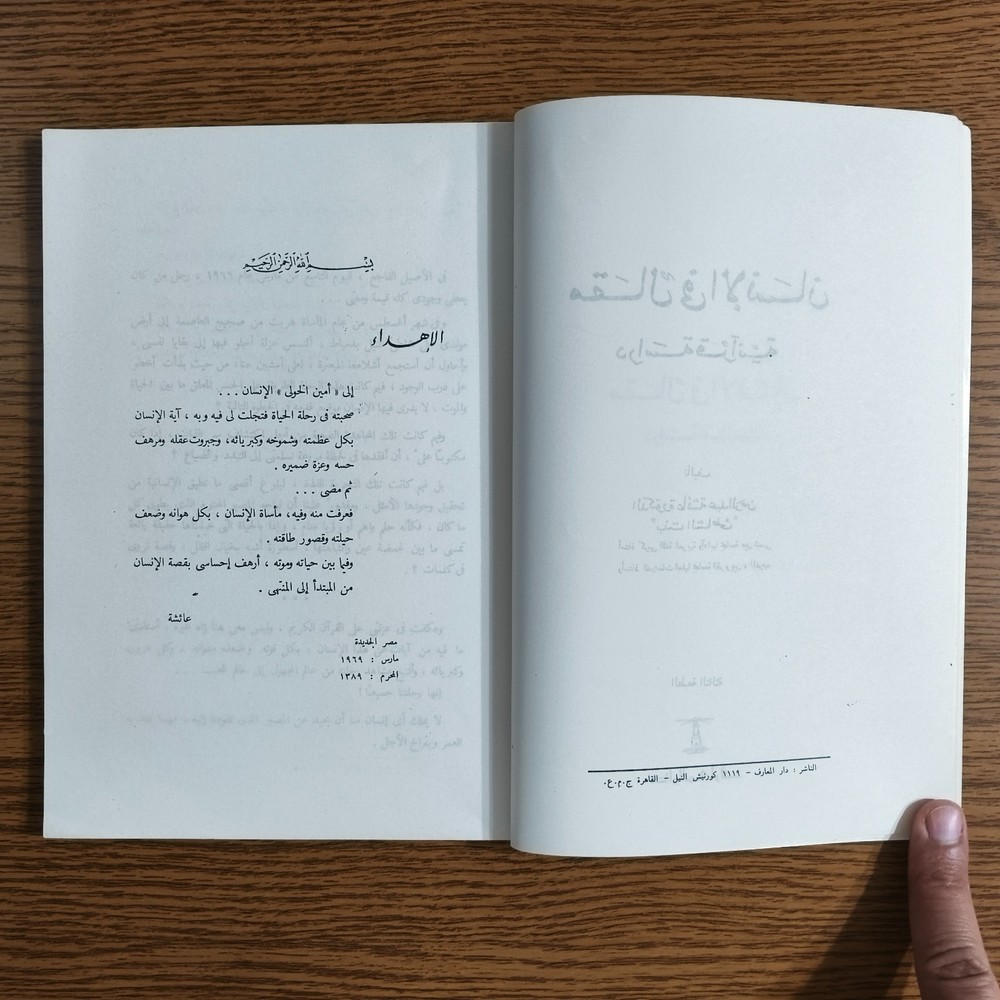 الناشر : دار المعارف – ١١١٩ كورنيش النيل – القاهرة ج.م.ع.
بسم الله الرحمن الرحيم
الإهداء
إلى « أمين الخولى » الإنسان . . .
صحبته فى رحلة الحياة فتجلت لى فيه وبه ، آية الإنسان
بكل عظمته وشموخه وكبريائه، وجبروت عقله ومرهف
حسه وعزة ضميره .
ثم مضى . . .
فعرفت منه وفيه، مأساة الإنسان ، بكل هوانه وضعف
حيلته وقصور طاقته .
وفيما بين حياته وموته ، أرهف إحساسى بقصة الإنسان
من المبتدأ إلى المنتهى .
عائشة
مصر الجديدة
مارس : ١٩٦٩
المحرم : ١٣٨٩